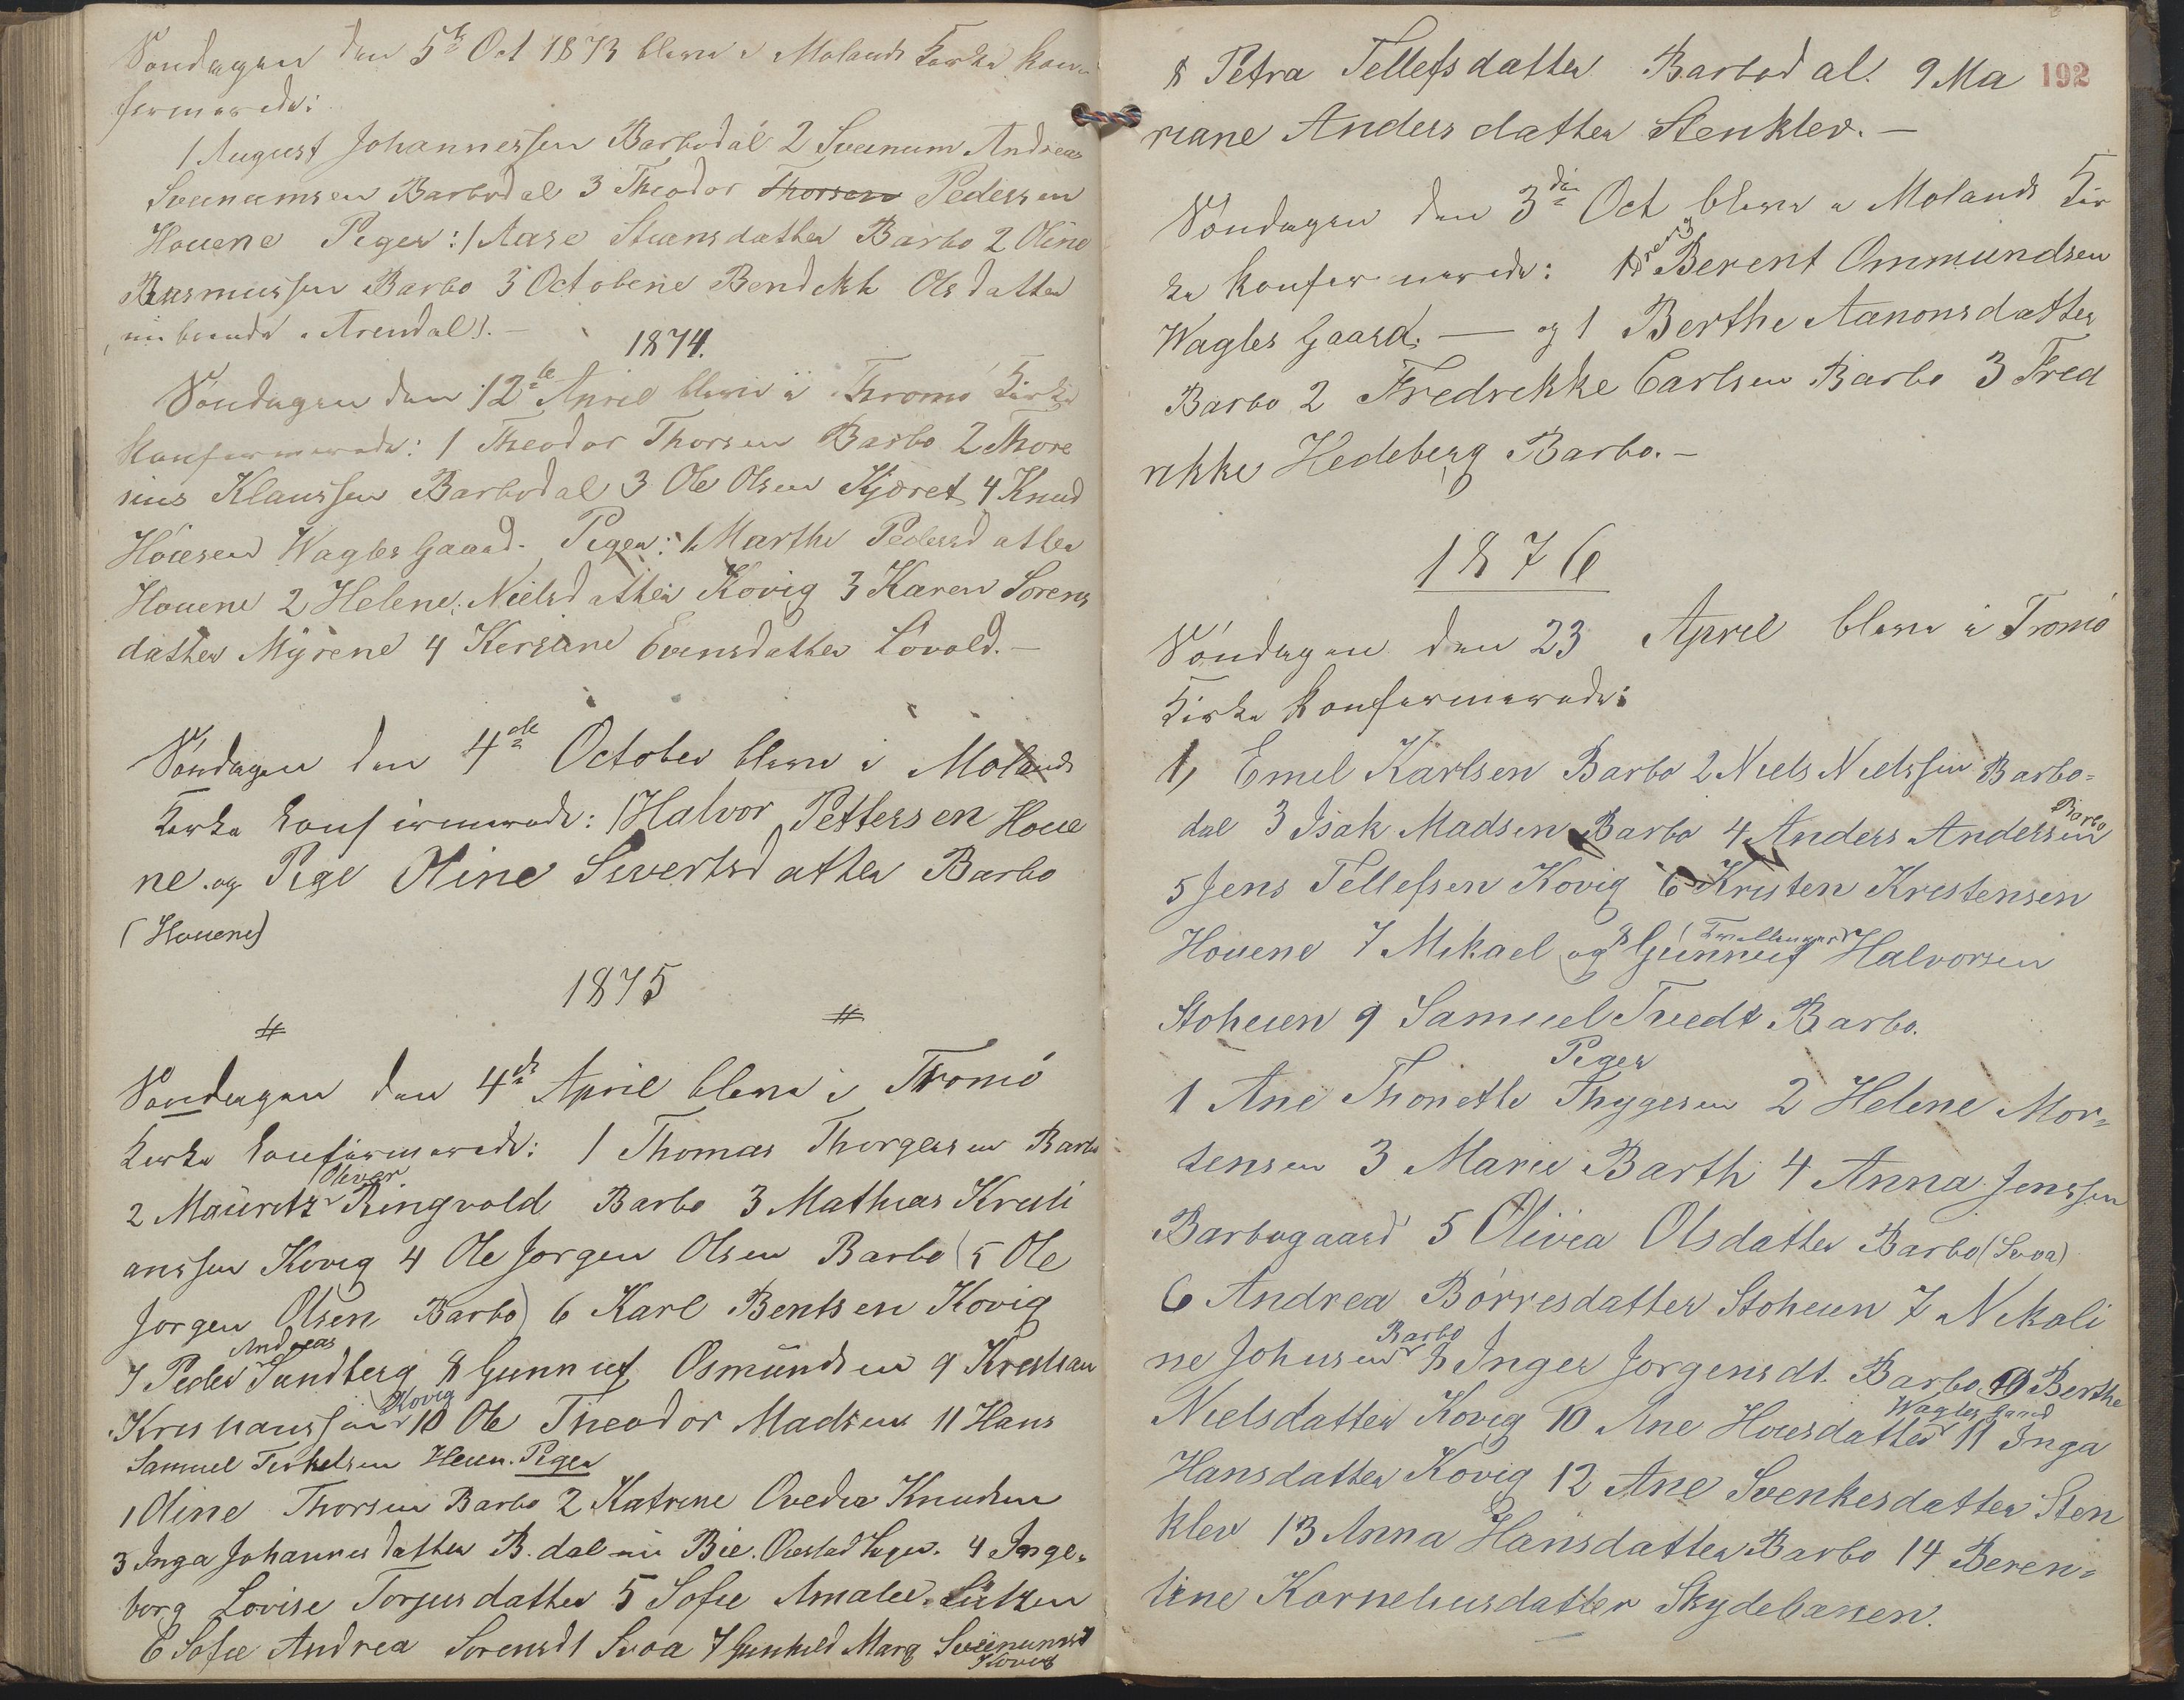 Söndagen den 5te Oct 1873 bleve i Molands Kirke kon-
firmerede:
1 August Johannessen Barbodal 2 Sveinum Andreas
Sveinumsen Barbodal 3 Theodor Thorsen Pedersen
Houene Piger: 1 Aase Steensdatter Barbo 2 Oline
Rasmussen Barbo 3 Octobene Bendikte Olsdatter
boende i Arendal).—
1874.
Söndagen den 12te April bleve i Tromö Kirke
konfirmerede: 1 Theodor Thorsen Barbo 2 Thore
sius Klaussen Barbodal 3 Ole Olsen Kjøret 4 Knud
Höiesen Wagles Gaard. Piger: 1 Marthe Pedersdatter
Houene 2 Helene Nielsdatter Kovig 3 Karen Sörens
datter Myrene 4 Kersine Evensdatter Lövold.—
Söndagen den 4de October bleve i Molands
Kirke konfirmerede: 1 Halvor Pettersen Houe
ne og Pige Oline Sivertsdatter Barbo
(Houene)
1875
# #
Söndagen den 4de April bleve i Tromö
Kirke konfirmerede: 1 Thomas Thorgersen Barbo
Oliver
2 Mauritz Ringvold Barbo 3 Mathias Kristi
anssen Kovig 4 Ole Jörgen Olsen Barbo (5 Ole
Jörgen Olsen Barbo) 6 Karl Bentsen Kovig
Andreas
7 Peder Sundberg 8 Gunnuf Osmundsen 9 Kristian
Kovig
Kristianssen 10 Ole Theodor Madsen 11 Hans
Samuel Terkelsen Heien. Piger
1 Oline Thorsen Barbo 2 Katrine Ovedia Knudsen
3 Inga Johannesdatter B.dal Bie. 4 Inge-
borg Lovise Torjusdatter 5 Sofie Amalie Lützen
6 Sofie Andrea Sörensdt Svoa 7 Gunhild Marg Sveinumsd
Kovig
192
8 Petra Tellefsdatter Barbodal. 9 Ma
riane Andersdatter Stenklev.—
Söndagen den 3die Oct bleve i Molands Kir
ke konfirmerede: 1 Dreng Berent Ommundsen
Wagles Gaard. — og 1 Berthe Aanonsdatter
Barbo 2 Fredrekke Carlsen Barbo 3 Fred
rekke Hedeberg Barbo.—
1876
Söndagen den 23 April bleve i Tromö
Kirke konfirmerede:
1, Emil Karlsen Barbo 2 Niels Nielssen Barbo-
Barbo
dal 3 Isak Madsen Barbo 4 Anders Andersen
5 Jens Tellefsen Kovig 6 Kristen Kristensen
(Tvillinger)
Houene 7 Mikael og 8 Gunnuf Halvorsen
Stoheien 9 Samuel Tvedt Barbo.
Piger
1 Ane Thonette Thygesen 2 Helene Mor-
tensen 3 Marie Barth 4 Anna Jenssen
Barbogaard 5 Olivia Olsdatter Barbo (Svoa)
6 Andrea Börresdatter Stoheien 7 Nikoli
Barbo
ne Johnsen 8 Inger Jörgensdt. Barbo 9 Berthe
Wagles Gaard
Nielsdatter Kovig 10 Ane Höiesdatter 11 Inga
Hansdatter Kovig 12 Ane Svenkesdatter Sten
klev 13 Anna Hansdatter Barbo 14 Beren-
tine Korneliusdatter Skydebanen.